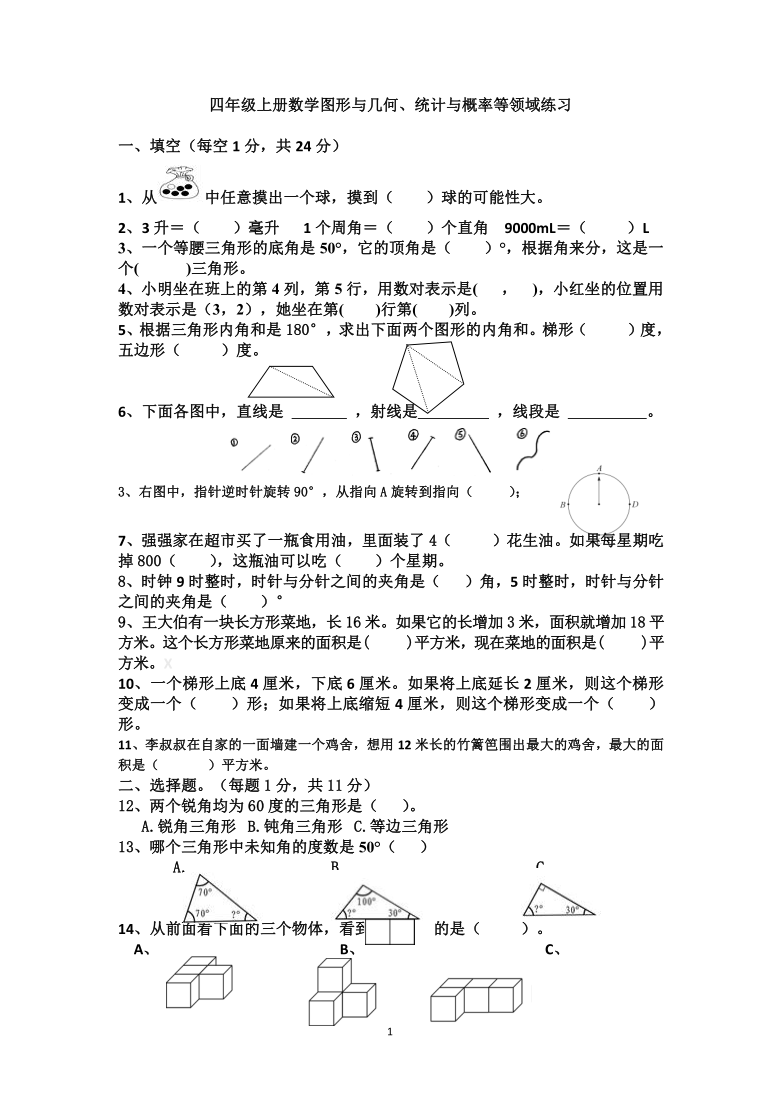 四年级上册数学图形与几何、统计与概率等领域练习
一、填空（每空1分，共24分）
1、从 中任意摸出一个球，摸到（ ）球的可能性大。
2、3升＝（ ）毫升 1个周角＝（ ）个直角 9000mL＝（ ）L
3、一个等腰三角形的底角是50°，它的顶角是（ ）°，根据角来分，这是一
个( )三角形。
4、小明坐在班上的第4列，第5行，用数对表示是( ， )，小红坐的位置用
数对表示是（3，2），她坐在第( )行第( )列。
5、根据三角形内角和是180°，求出下面两个图形的内角和。梯形（ ）度，
五边形（ ）度。
6、下面各图中，直线是 ______ ，射线是________ ，线段是 ________ 。
① ② ③ ④ ⑤ ⑥
3、右图中，指针逆时针旋转90°，从指向A旋转到指向（ ）；
A
B D
7、强强家在超市买了一瓶食用油，里面装了4（ ）花生油。如果每星期吃
掉800（ ），这瓶油可以吃（ ）个星期。
8、时钟9时整时，时针与分针之间的夹角是（ ）角，5时整时，时针与分针
之间的夹角是（ ）°
9、王大伯有一块长方形菜地，长16米。如果它的长增加3米，面积就增加18平
方米。这个长方形菜地原来的面积是( )平方米，现在菜地的面积是( )平
方米。X
10、一个梯形上底4厘米，下底6厘米。如果将上底延长2厘米，则这个梯形
变成一个（ ）形；如果将上底缩短4厘米，则这个梯形变成一个（ ）
形。
11、李叔叔在自家的一面墙建一个鸡舍，想用12米长的竹篱笆围出最大的鸡舍，最大的面
积是（ ）平方米。
二、选择题。（每题1分，共11分）
12、两个锐角均为60度的三角形是（ ）。
A.锐角三角形 B.钝角三角形 C.等边三角形
13、哪个三角形中未知角的度数是50°（ ）
A. B C
70° 70° ?° 100° ?° 30° ?° 30°
14、从前面看下面的三个物体，看到 的是（ ）。
A、 B、 C、
1